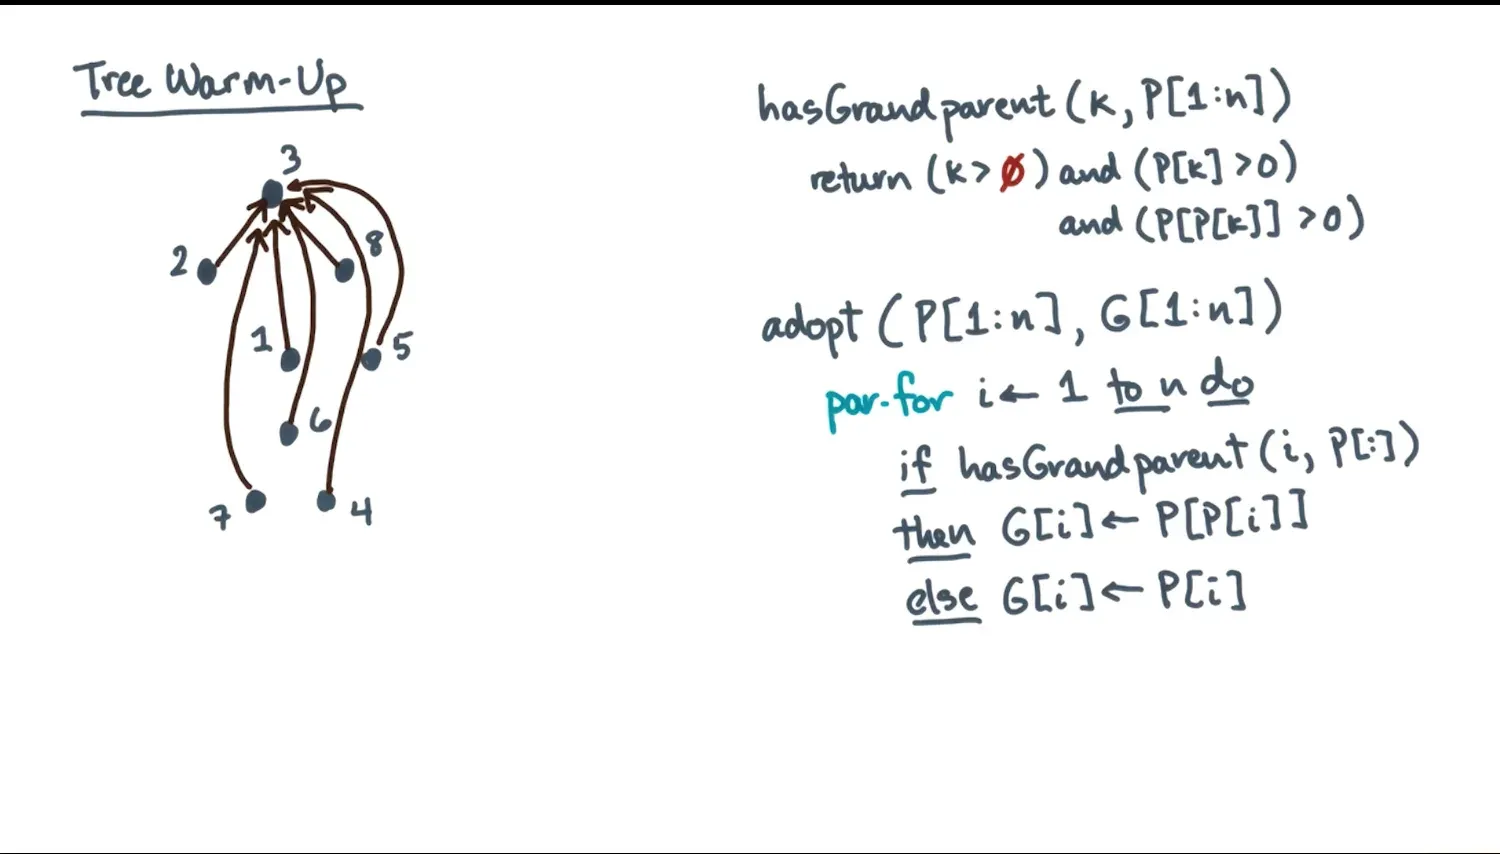 Tree Warm-Up
3
2
8
1
5
6
7
4
hasGrandparent(k, P[1:n])
return (k > ∅) and (P[k] > 0)
and (P[P[k]] > 0)
adopt (P[1:n], G[1:n])
par-for i ← 1 to n do
if hasGrandparent(i, P[:])
then G[i] ← P[P[i]]
else G[i] ← P[i]